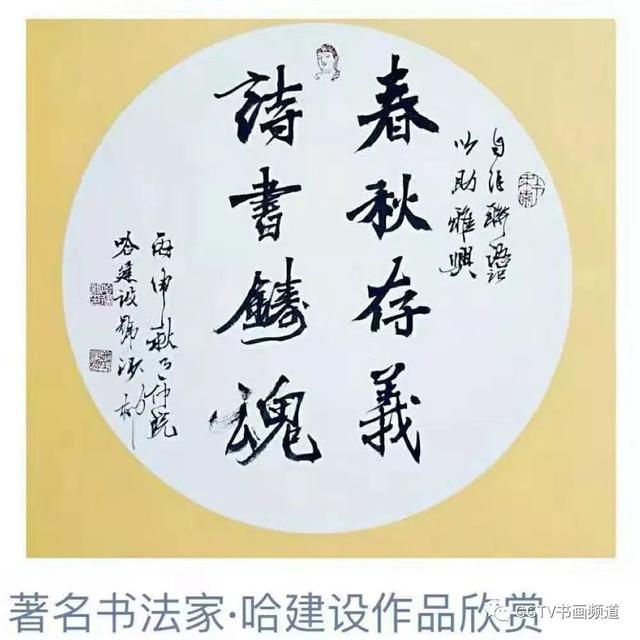 春秋存義
詩書鑄魂
自作聯語
以助雅興
丙申秋月
哈建設
著名书法家·哈建设作品欣赏
CCTV书画频道